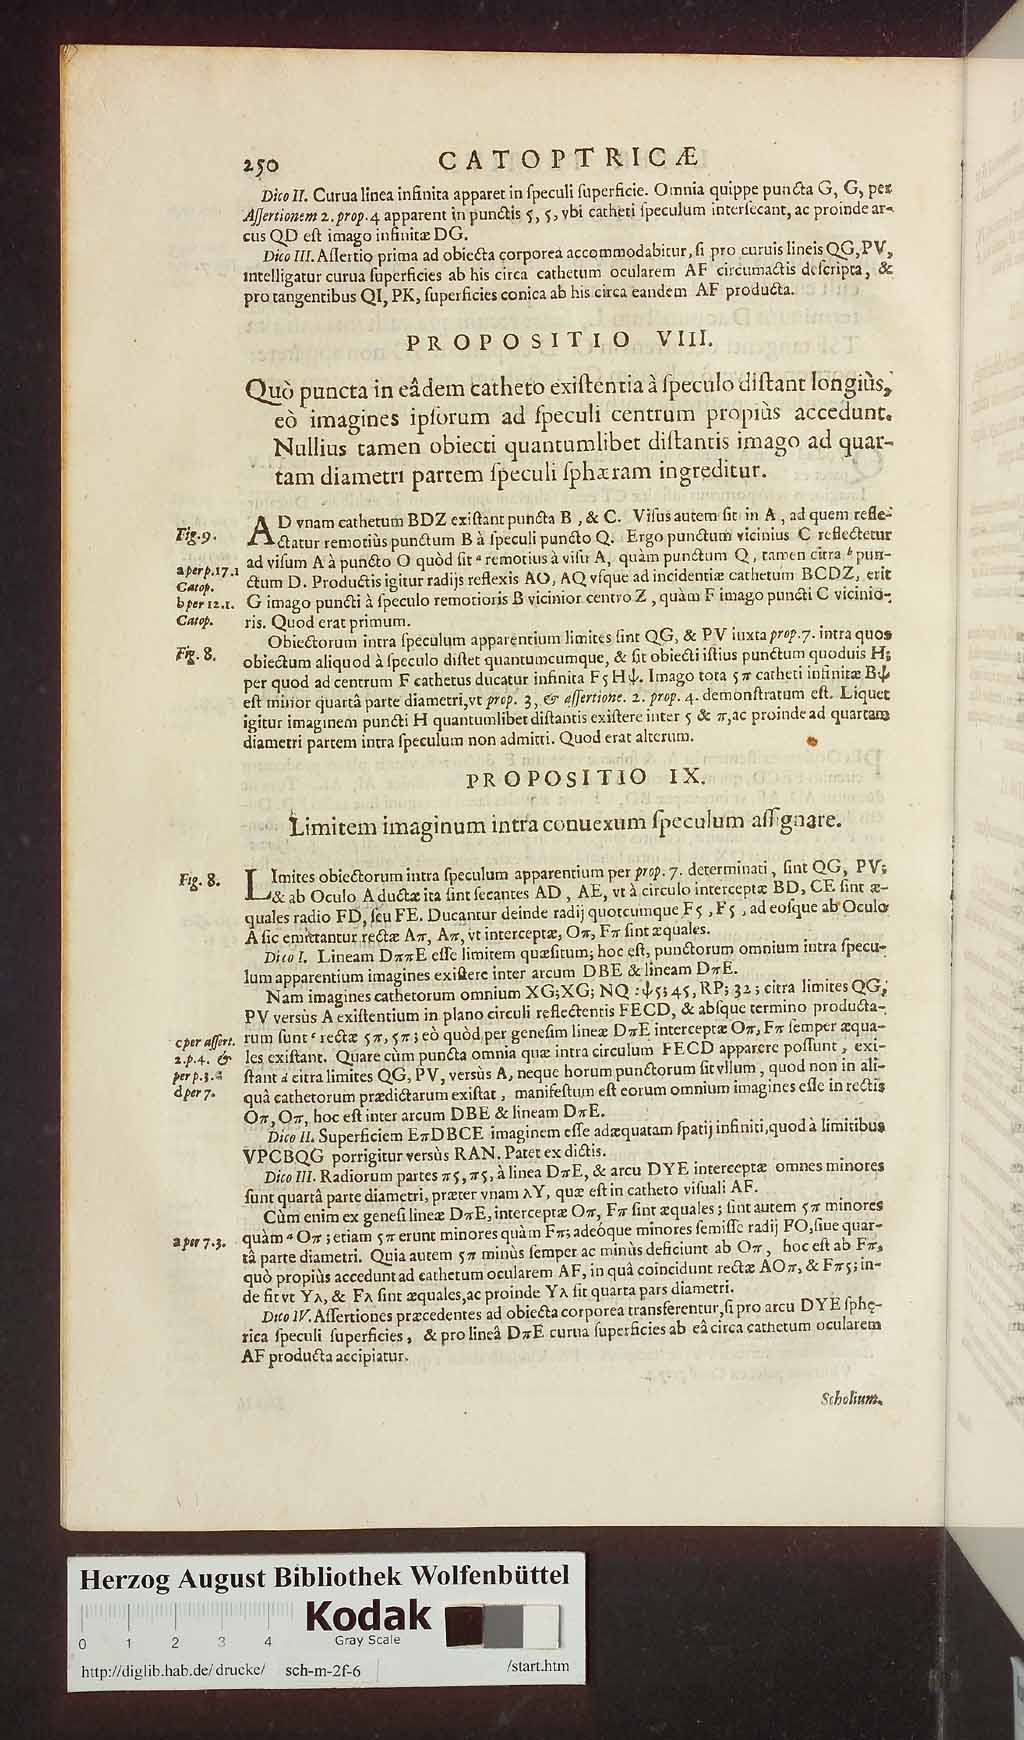 250 CATOPTRICÆ
Dico II. Curua linea infinita apparet in ſpeculi ſuperficie. Omnia quippe puncta G, G, per
Aſſertionem 2. prop. 4 apparent in punctis 5, 5, vbi catheti ſpeculum interſecant, ac proinde ar-
cus QD eſt imago infinitæ DG.
Dico III. Aſſertio prima ad obiecta corporea accommodabitur, ſi pro curuis lineis QG, PV,
intelligatur curua ſuperficies ab his circa cathetum ocularem AF circumactis deſcripta, &
pro tangentibus QI, PK, ſuperficies conica ab his circa eandem AF producta.
PROPOSITIO VIII.
Quò puncta in eâdem catheto exiſtentia à ſpeculo diſtant longiùs,
eò imagines ipſorum ad ſpeculi centrum propiùs accedunt.
Nullius tamen obiecti quantumlibet diſtantis imago ad quar-
tam diametri partem ſpeculi ſphæram ingreditur.
Fig. 9.
a per p. 17. 1
Catop.
b per 12. 1.
Catop.
AD vnam cathetum BDZ exiſtant puncta B, & C. Viſus autem ſit in A, ad quem refle-
ctatur remotiùs punctum B à ſpeculi puncto Q. Ergo punctum vicinius C reflectetur
ad viſum A à puncto O quòd ſit a remotius à viſu A, quàm punctum Q, tamen citra b pun-
ctum D. Productis igitur radijs reflexis AO, AQ vſque ad incidentiæ cathetum BCDZ, erit
G imago puncti à ſpeculo remotioris B vicinior centro Z, quàm F imago puncti C vicinio-
ris. Quod erat primum.
Fig. 8.
Obiectorum intra ſpeculum apparentium limites ſint QG, & PV iuxta prop. 7. intra quos
obiectum aliquod à ſpeculo diſtet quantumcumque, & ſit obiecti iſtius punctum quoduis H;
per quod ad centrum F cathetus ducatur infinita F5Hψ. Imago tota 5π catheti infinitæ Bψ
eſt minor quartâ parte diametri, vt prop. 3, & aſſertione. 2. prop. 4. demonſtratum eſt. Liquet
igitur imaginem puncti H quantumlibet diſtantis exiſtere inter 5 & π, ac proinde ad quartam
diametri partem intra ſpeculum non admitti. Quod erat alterum.
PROPOSITIO IX.
Limitem imaginum intra conuexum ſpeculum aſſignare.
Fig. 8.
LImites obiectorum intra ſpeculum apparentium per prop. 7. determinati, ſint QG, PV;
& ab Oculo A ductæ ita ſint ſecantes AD, AE, vt à circulo interceptæ BD, CE ſint æ-
quales radio FD, ſeu FE. Ducantur deinde radij quotcumque F5, F5, ad eoſque ab Oculo
A ſic emittantur rectæ Aπ, Aπ, vt interceptæ, Oπ, Fπ ſint æquales.
Dico I. Lineam DππE eſſe limitem quæſitum; hoc eſt, punctorum omnium intra ſpecu-
lum apparentium imagines exiſtere inter arcum DBE & lineam DπE.
Nam imagines cathetorum omnium XG; XG; NQ: ψ5; 45, RP; 32; citra limites QG,
PV versùs A exiſtentium in plano circuli reflectentis FECD, & abſque termino producta-
c per aſſert.
2. p. 4. &
per p. 3.
d per 7.
rum ſunt c rectæ 5π, 5π; eò quòd per geneſim lineæ DπE interceptæ Oπ, Fπ ſemper æqua-
les exiſtant. Quare cùm puncta omnia quæ intra circulum FECD apparere poſſunt, exi-
ſtant d citra limites QG, PV, versùs A, neque horum punctorum ſit vllum, quod non in ali-
quâ cathetorum prædictarum exiſtat, manifeſtum eſt eorum omnium imagines eſſe in rectis
Oπ, Oπ, hoc eſt inter arcum DBE & lineam DπE.
Dico II. Superficiem EπDBCE imaginem eſſe adæquatam ſpatij infiniti, quod à limitibus
VPCBQG porrigitur versùs RAN. Patet ex dictis.
Dico III. Radiorum partes π5, π5, à linea DπE, & arcu DYE interceptæ omnes minores
ſunt quartâ parte diametri, præter vnam λY, quæ eſt in catheto viſuali AF.
a per 7. 3.
Cùm enim ex geneſi lineæ DπE, interceptæ Oπ, Fπ ſint æquales; ſint autem 5π minores
quàm a Oπ; etiam 5π erunt minores quàm Fπ; adeóque minores ſemiſſe radij FO, ſiue quar-
tâ parte diametri. Quia autem 5π minùs ſemper ac minùs deficiunt ab Oπ, hoc eſt ab Fπ,
quò propiùs accedunt ad cathetum ocularem AF, in quâ coincidunt rectæ AOπ, & Fπ5; in-
de fit vt Yλ, & Fλ ſint æquales, ac proinde Yλ ſit quarta pars diametri.
Dico IV. Aſſertiones præcedentes ad obiecta corporea transferentur, ſi pro arcu DYE ſphę-
rica ſpeculi ſuperficies, & pro lineâ DπE curua ſuperficies ab eâ circa cathetum ocularem
AF producta accipiatur.
Scholium.
Herzog August Bibliothek Wolfenbüttel
0 1 2 3 4
Kodak
Gray Scale
http://diglib.hab.de/drucke/ sch-m-2f-6 /start.htm